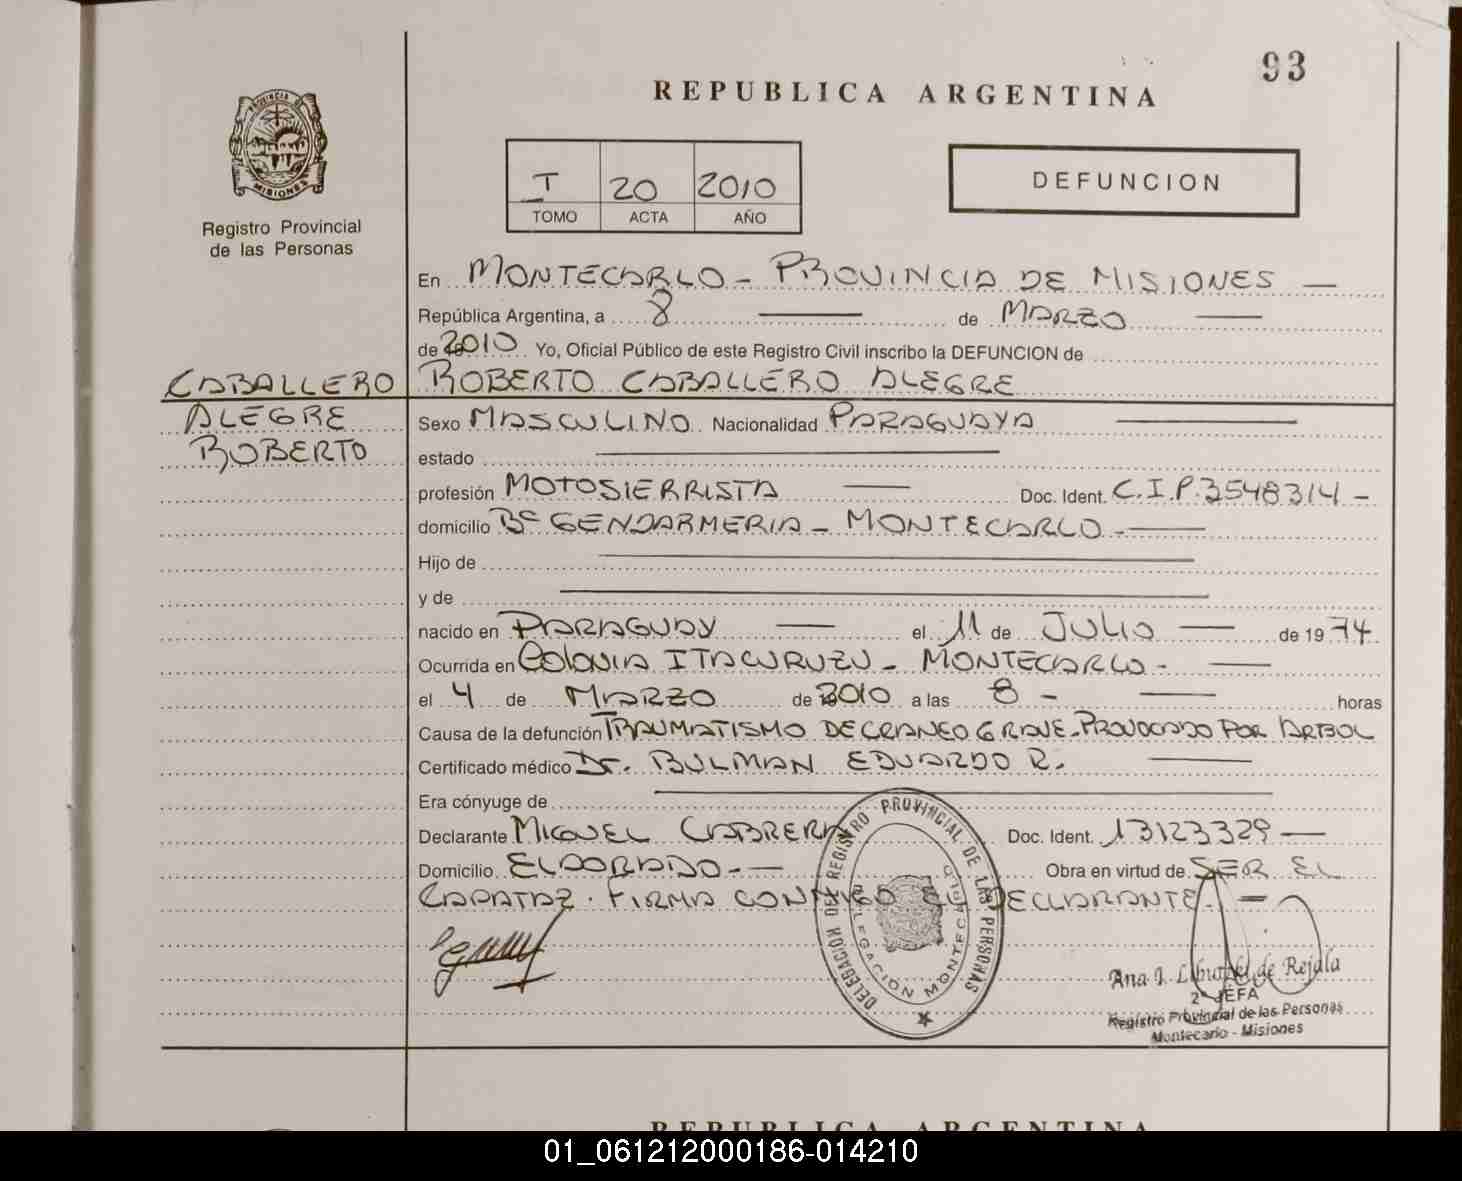 93
REPUBLICA ARGENTINA
PROVINCIA DE
MISIONES
Registro Provincial
de las Personas
I 20 2010
TOMO ACTA AÑO
DEFUNCION
En MONTECARLO - PROVINCIA DE MISIONES —
República Argentina, a 8 — de MARZO —
de 2010 Yo, Oficial Público de este Registro Civil inscribo la DEFUNCION de
CABALLERO ROBERTO CABALLERO ALEGRE
ALEGRE
ROBERTO
Sexo MASCULINO Nacionalidad PARAGUAYA —
estado —
profesión MOTOSIERRISTA — Doc. Ident. C.I.P. 3548314 -
domicilio Bº GENDARMERIA - MONTECARLO - —
Hijo de —
y de —
nacido en PARAGUAY — el 11 de JULIO — de 1974
Ocurrida en COLONIA ITACURUZU - MONTECARLO - —
el 4 de MARZO de 2010 a las 8 - — horas
Causa de la defunción TRAUMATISMO DE CRANEO GRAVE - PROVOCADO POR ARBOL
Certificado médico Dr. BULMAN EDUARDO R. —
Era cónyuge de —
Declarante MIGUEL CABRERA Doc. Ident. 13123329 —
Domicilio ELDORADO - — Obra en virtud de SER EL
CAPATAZ. FIRMA CONMIGO EL DECLARANTE. —
DELEGACION DEL REGISTRO PROVINCIAL DE LAS PERSONAS
DELEGACION MONTECARLO
Ana I. de Rejala
2ª JEFA
Registro Provincial de las Personas
Montecarlo - Misiones
REPUBLICA ARGENTINA
01_061212000186-014210